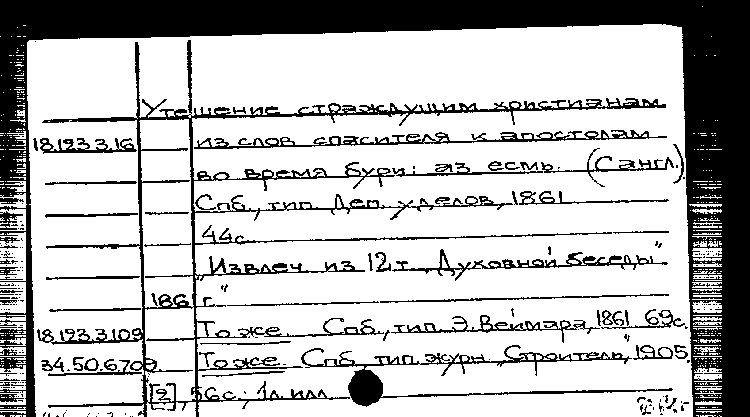 Утешение страждущим христианам
18.123.3.16 из слов спасителя к апостолам
во время бури: аз есмь. (С англ.)
Спб., тип. Деп. уделов, 1861
44с.
„Извлеч. из 12 т. „Духовной беседы"
186 г."
18.123.3.109 То же. Спб., тип. Э. Веймара, 1861 69с.
34.50.6.709. То же. Спб, тип. журн. „Строитель", 1905.
[2], 56с.; 1л. илл.